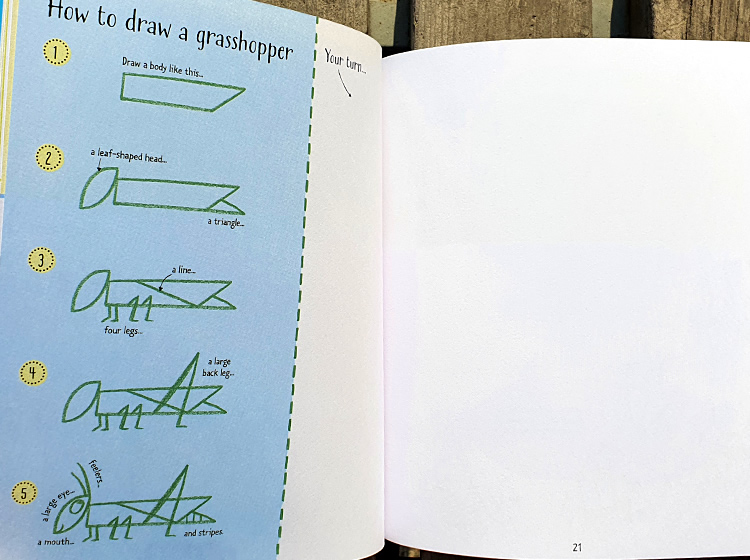 How to draw a grasshopper
1
Draw a body like this...
2
a leaf-shaped head...
a triangle...
3
a line...
four legs...
4
a large
back leg...
5
feelers...
a large eye...
a mouth...
and stripes.
Your turn...
21